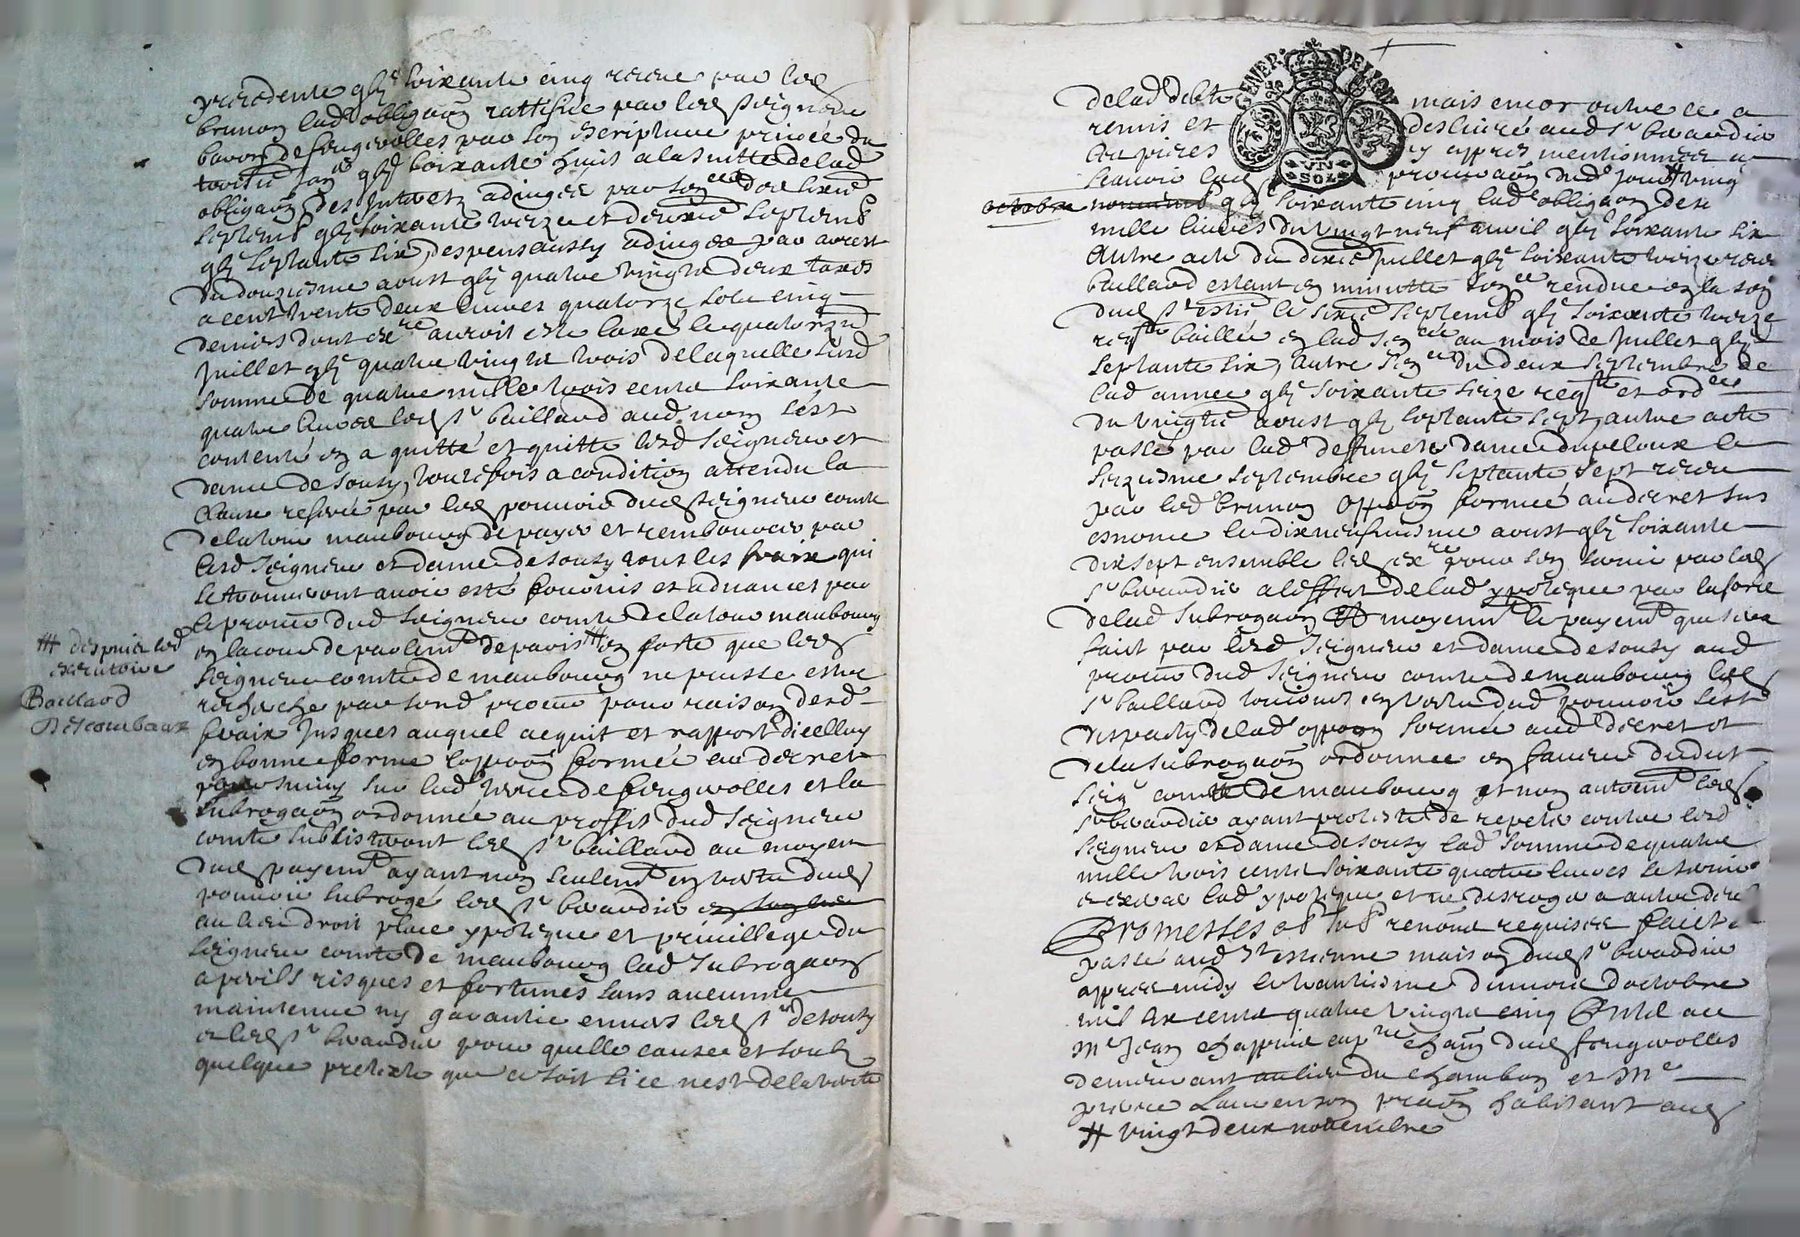 precedente gbi^c soixante cinq receue par led
brunon lad obligaõn rattifiée par led seigneur
baron de feugerolles par son escripture privée du
janv^er gbi^c soixante huit a la suitte de lad
obligaõn des Intherests adiugés par sen^ce dud sixie
septemb gbi^c soixante treize et deuxie septemb
gbi^c septante six, despens aussy adiugés par arrest
du douziesme aoust gbi^c quatre vingts deux taxés
a cent trente deux livres quatorze sols cinq
deniers dont ex^re auroit esté laxé le quatorzie
Juillet gbi^c quatre vingts trois de laquelle susd
somme de quatre mille trois cents soixante
quatre livres led s^r baillard aud nom s'est
contenté en a quitté et quitte lesd seigneur et
dame de sousy, toutefois a condition attendu la
clause reservée par led pouvoir dud seigneur comte
de latour maubourg de payer et rembourcer par
lesd seigneur et dame de sousy tous les fraix qui
se trouveront avoir esté fournis et advancés par
le procur dud seigneur comte de latour maubourg
en la cour de parlem^t de paris # en sorte que led
seigneur comte de maubourg ne puisse estre
recherché par sond procur pour raison desd
fraix Jusques auquel acquit et rapport d'icelluy
en bonne forme l'oppoõn formée au decret
poursuivy sur lad terre de feugerolles et la
subrogaõn ordonnée au proffit dud seigneur
comte subsisteront led s^r baillard au moyen
dud payem^t ayant non seulem^t en vertu dud
pouvoir subrogé led s^r beraudier
au lieu droit place ypoteque et privillege du
seigneur comte de maubourg lad subrogaõn
a perils risques et fortunes sans aucunne
maintenue ny garantie envers led s^r de sousy
et led s^r beraudier pour quelle cause et soubs
quelque pretexte que ce soit si ce n'est de la verité
# despuis led
executoire
Baillard
Descombeaux
GENER. DE LYON
VN SOL
de lad debte mais encor outre ce a
remis et deslivré aud s^r beraudier
les pieces cy appres mentionnées a
scavoir lad procuraõn dud jour # vingt
octobre novemb gbi^c soixante cinq lad obligaõn de six
mille livres du vingt neuf avril gbi^c soixante six
autre acte du dixie juillet gbi^c soixante treize receu
baillard estant en minutte sen^ce rendue en la sen
dud s^t estie le sixie septemb gbi^c soixante treize
req^te baillée en lad sen^cee au mois de Juillet gbi^c
septante six, autre sen^ce du deux septembre de
lad année gbi^c soixante seize req^te et ord^ce
du vingtie aoust gbi^c septante sept, autre acte
passé par lad deffuncte dame dupeloux le
seiziesme septembre gbi^c septante sept receu
par led brunon oppoõn formée au decret sus
esnoncé le dix neufviesme aoust gbi^c soixante
dix sept ensemble led ex^re pour s'en servir par led
s^r beraudier a l'effect de lad ypoteque par la force
de lad subrogaõn # moyenn^t le payem^t que sera
faict par lesd seigneur et dame de sousy aud
procur dud seigneur comte de maubourg led
s^r baillard tousiours en vertu dud pouvoir s'est
desparty de lad oppoõn formée aud decret et
de la subrogaõn ordonnée en faveur dudict
seig^r comte de maubourg et non autrem^t led
s^r beraudier ayant protesté de repeter contre lesd
seigneur et dame de sousy lad somme de quatre
mille trois cents soixante quatre livres
lad ypoteque et ne desroger a autre
Promesses ob sub renonc requises faict et
passé aud s^t estienne maison dud s^r beraudier
appres midy le trantiesme dernier d'octobre
mil six cents quatre vingts cinq P^nts
M^e Jean chappuis cap^ne chaõn dud feugerolles
demeurant au lieu du chambon et M^e
pierre Laurenson praõn habitant aud
# vingt deux novembre